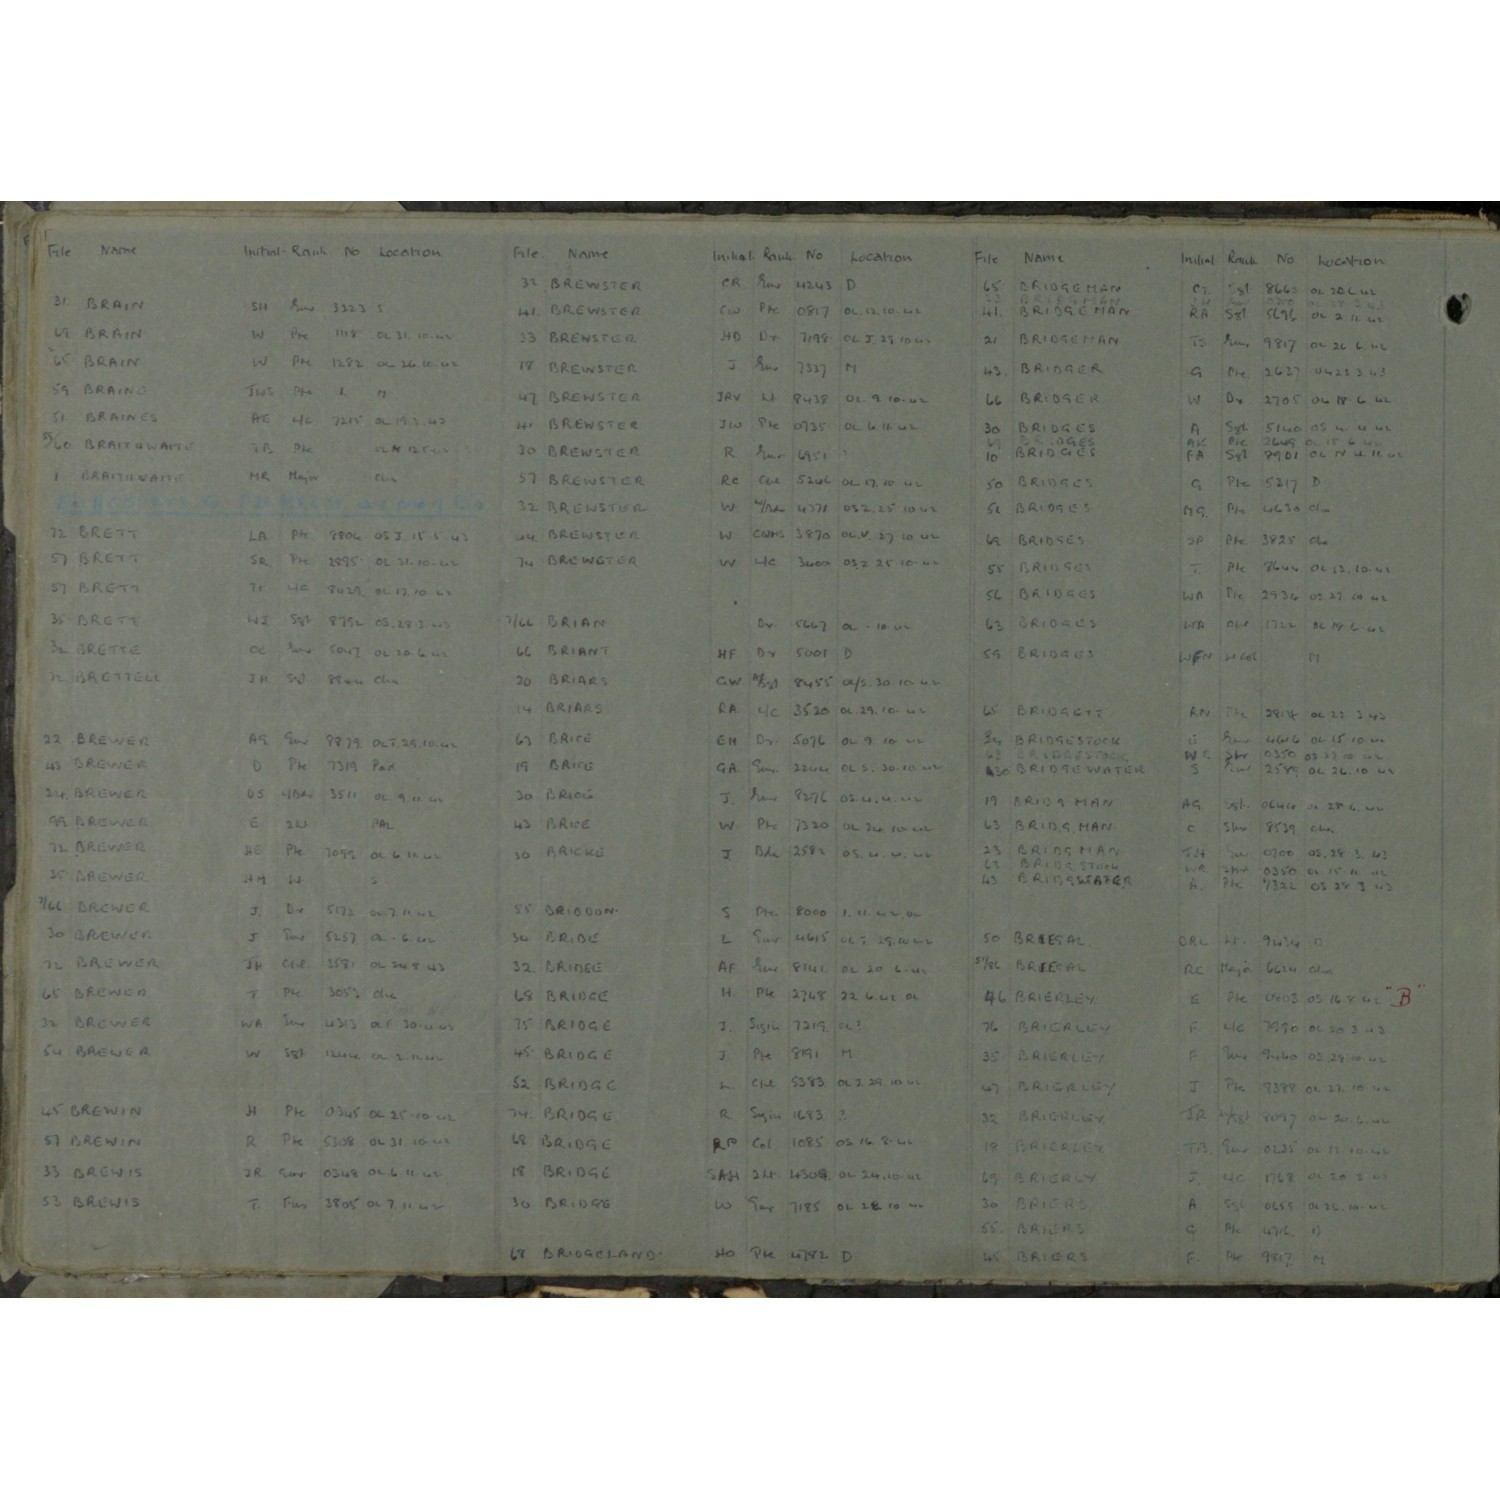 File Name Initial Rank No Location
31 BRAIN SH Gnr 3323 S
69 BRAIN W Pte 1118 OL 31.10.42
65 BRAIN W Pte 1282 OL 26.10.42
59 BRAING JWS Pte M
51 BRAINES AE L/C 7215 OL 19.3.43
BRAITHWAITE Pte
1 BRAITHWAITE MR Major Cha
72 BRETT LA Pte 8806 OS J. 15.5.43
57 BRETT SR Pte 2895 OL 31.10.42
57 BRETT L/C 8429 OL 17.10.42
35 BRETT WJ Sgt 8792 OS.28.3.43
32 BRETTE Gnr 5047 OL 20.6.42
72 BRETTELL JH Cha
22 BREWER AG Gnr 9879 OL J.29.10.42
43 BREWER D Pte 7319 Pad
24 BREWER DS L/Bdr 3511 OL 9.11.42
99 BREWER E 2Lt PAL
72 BREWER HE Pte 7099 OL 6.11.42
35 BREWER HM Lt S
7/66 BREWER J. Dr 5172 OL 7.11.42
30 BREWER J Gnr 5257 OL -6.42
72 BREWER JH Cpl 3581 OL 24.8.43
65 BREWER T Pte 3053 Cha
32 BREWER WA Gnr 4313
54 BREWER W Sgt 1244 OL 2.11.42
45 BREWIN H Pte 0345 OL 25.10.42
57 BREWIN R Pte 5308 OL 31.10.42
33 BREWIS JR Gnr 0348 OL 6.11.42
53 BREWIS T. Fus 3805 OL 7.11.42
File. Name Initial Rank No Location
32 BREWSTER CR Gnr 4243 D
41 BREWSTER CW Pte 0817 OL.12.10.42
33 BREWSTER HD Dr 7198 OL J.29.10.42
18 BREWSTER J Gnr 7337 M
47 BREWSTER JRV Lt 8438 OL.9.10.42
41 BREWSTER JW Pte 0735 OL 6.11.42
30 BREWSTER R Gnr 6951 ?
57 BREWSTER RC Cpl 5246 OL 17.10.42
32 BREWSTER W L/Bdr 4371 OS 2.25.10.42
44 BREWSTER W CQMS 3870 OL.V.27.10.42
74 BREWSTER W L/C 3400 OS.2.25.10.42
7/66 BRIAN Dr 5667 OL -.10.42
66 BRIANT HF Dr 5001 D
20 BRIARS GW 8455 OL/S.30.10.42
14 BRIARS RA L/C 3520 OL.29.10.42
63 BRICE EH Dr 5076 OL 9.10.42
19 BRICE GA Gnr 2244 OL S.30.10.42
30 BRICE J. Gnr 8276 OS.4.4.42
43 BRICE W Pte 7320 OL 24.10.42
30 BRICKE J Bdr 2582 OS.4.4.42
55 BRIDDON. S Pte. 8000 1.11.42.OL
36 BRIDE L Gnr 4615 OL J 29.10.42
32 BRIDGE AF Gnr 8141 OL 20.6.42
68 BRIDGE H Pte 2768 22.6.42 OL
75 BRIDGE J. Sigm 7219 OL?
45 BRIDGE J Pte 8191 M
52 BRIDGE L. Cpl 5383 OL J.29.10.42
74. BRIDGE R Sigm 1683 ?
68 BRIDGE RP Col 1085 OS 16.8.42
18 BRIDGE SAH 2Lt 4308 OL 24.10.42
30 BRIDGE W Gnr 7185 OL 28.10.42
68 BRIDGELAND. HO Pte 4782 D
File Name Initial Rank No Location
65 BRIDGEMAN Sgt 8662 OL 20.6.42
BRIDGEMAN
41. BRIDGEMAN RA Sgt 5696 OL 2.11.42
21 BRIDGEMAN TS Gnr 9817 OL 26.6.42
43. BRIDGER G Pte 2637 OL 23.3.43
66 BRIDGER W Dr 2705 OL 18.6.42
30 BRIDGES A Sgt 5140 OS 4.4.42
69 BRIDGES AK Pte 2649 OL 15.6.42
10 BRIDGES FA Sgt 8901 OL N 4.11.42
50 BRIDGES G Pte 5217 D
52 BRIDGES MG. Pte 4630 Cha
69 BRIDGES JP Pte 3825 Cha
55 BRIDGES T. Pte 8644 OL 12.10.42
56 BRIDGES WA Pte 2934 OS 27.10.42
63 BRIDGES WA Dvr 1722 OL 19.6.42
59 BRIDGES WFN Lt Col M
65 BRIDGETT RN Pte 2818 OL 22.3.43
BRIDGESTOCK E Gnr 4616 OL 15.10.42
63 BRIDGESTOCK WR Spr 0350 OS 27.10.42
30 BRIDGEWATER S Gnr 2589 OL 26.10.42
19 BRIDGMAN AG Sgt. 0644 OL 28.6.42
63 BRIDGMAN C Spr 8539 Cha
23 BRIDGMAN JH Gnr 0700 OS.28.3.43
63 BRIDGSTOCK WR Spr 0350 OL 15.11.42
43 BRIDGWATER A. Pte 7322 OS 28.3.43
50 BRIEGAL DRL Lt. 9434 D
51/86 BRIEGAL RC Major 6624 Cha
46 BRIERLEY E Pte 0803 OS 16.8.42 "B"
76 BRIERLEY F L/C 7990 OL 20.3.43
35 BRIERLEY F Gnr 9460 OS.28.10.42
47 BRIERLEY J Pte 9388 OL 27.10.42
32 BRIERLEY JR 8097 OL 20.6.42
18 BRIERLEY TB. Gnr 0225 OL 12.10.42
69 BRIERLY J. L/C 1768
30 BRIERS A Sgt 0655 OL 26.10.42
55. BRIERS G Pte 4716. D
45 BRIERS F. Pte 9817 M